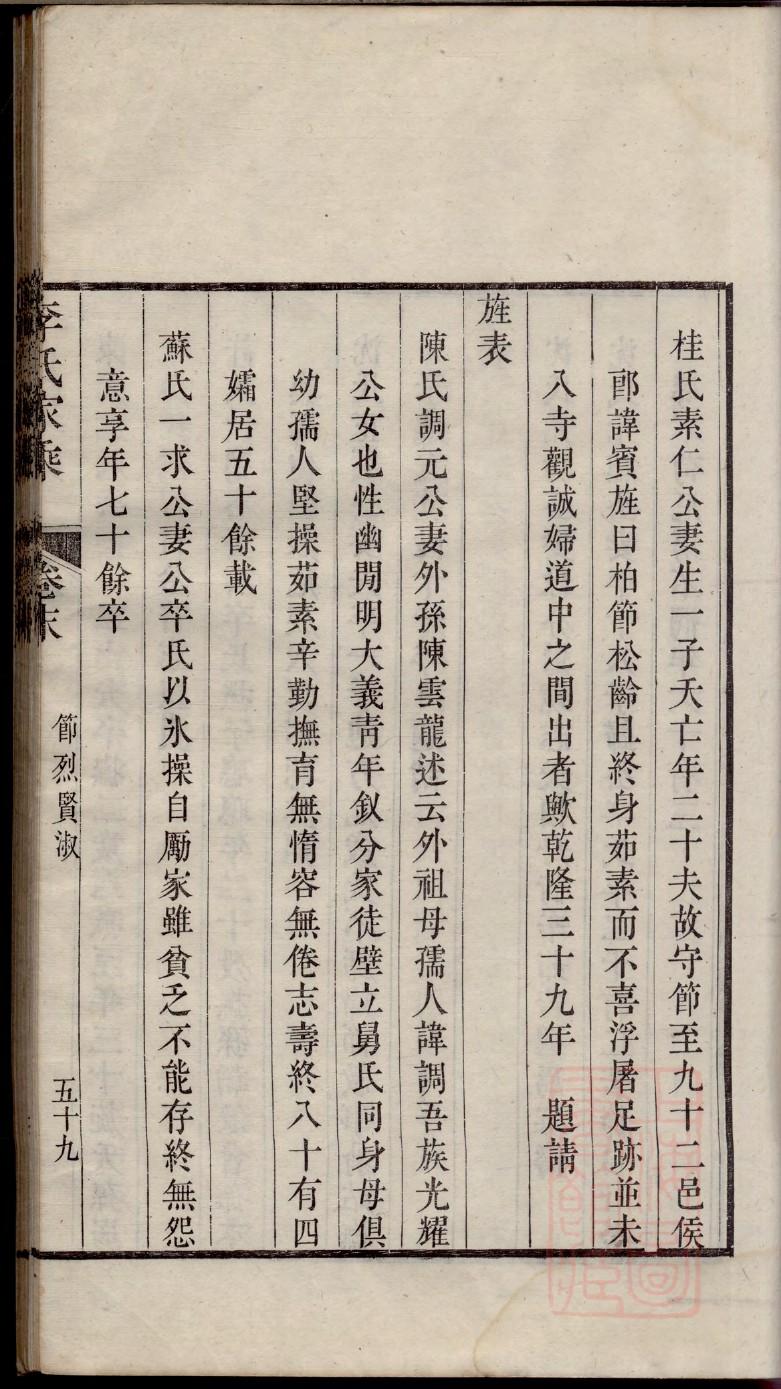 桂氏素仁公妻生一子夭亡年二十夫故守節至九十二邑侯
郎諱賓旌曰柏節松齡且終身茹素而不喜浮屠足跡並未
入寺觀誠婦道中之間出者歟乾隆三十九年　題請
旌表
陳氏調元公妻外孫陳雲龍述云外祖母孺人諱調吾族光耀
公女也性幽閒明大義靑年釵分家徒壁立舅氏同身母俱
幼孺人堅操茹素辛勤撫育無惰容無倦志壽終八十有四
孀居五十餘載
蘇氏一求公妻公卒氏以氷操自勵家雖貧乏不能存終無怨
意享年七十餘卒
李氏家乘　卷末　節烈賢淑　五十九